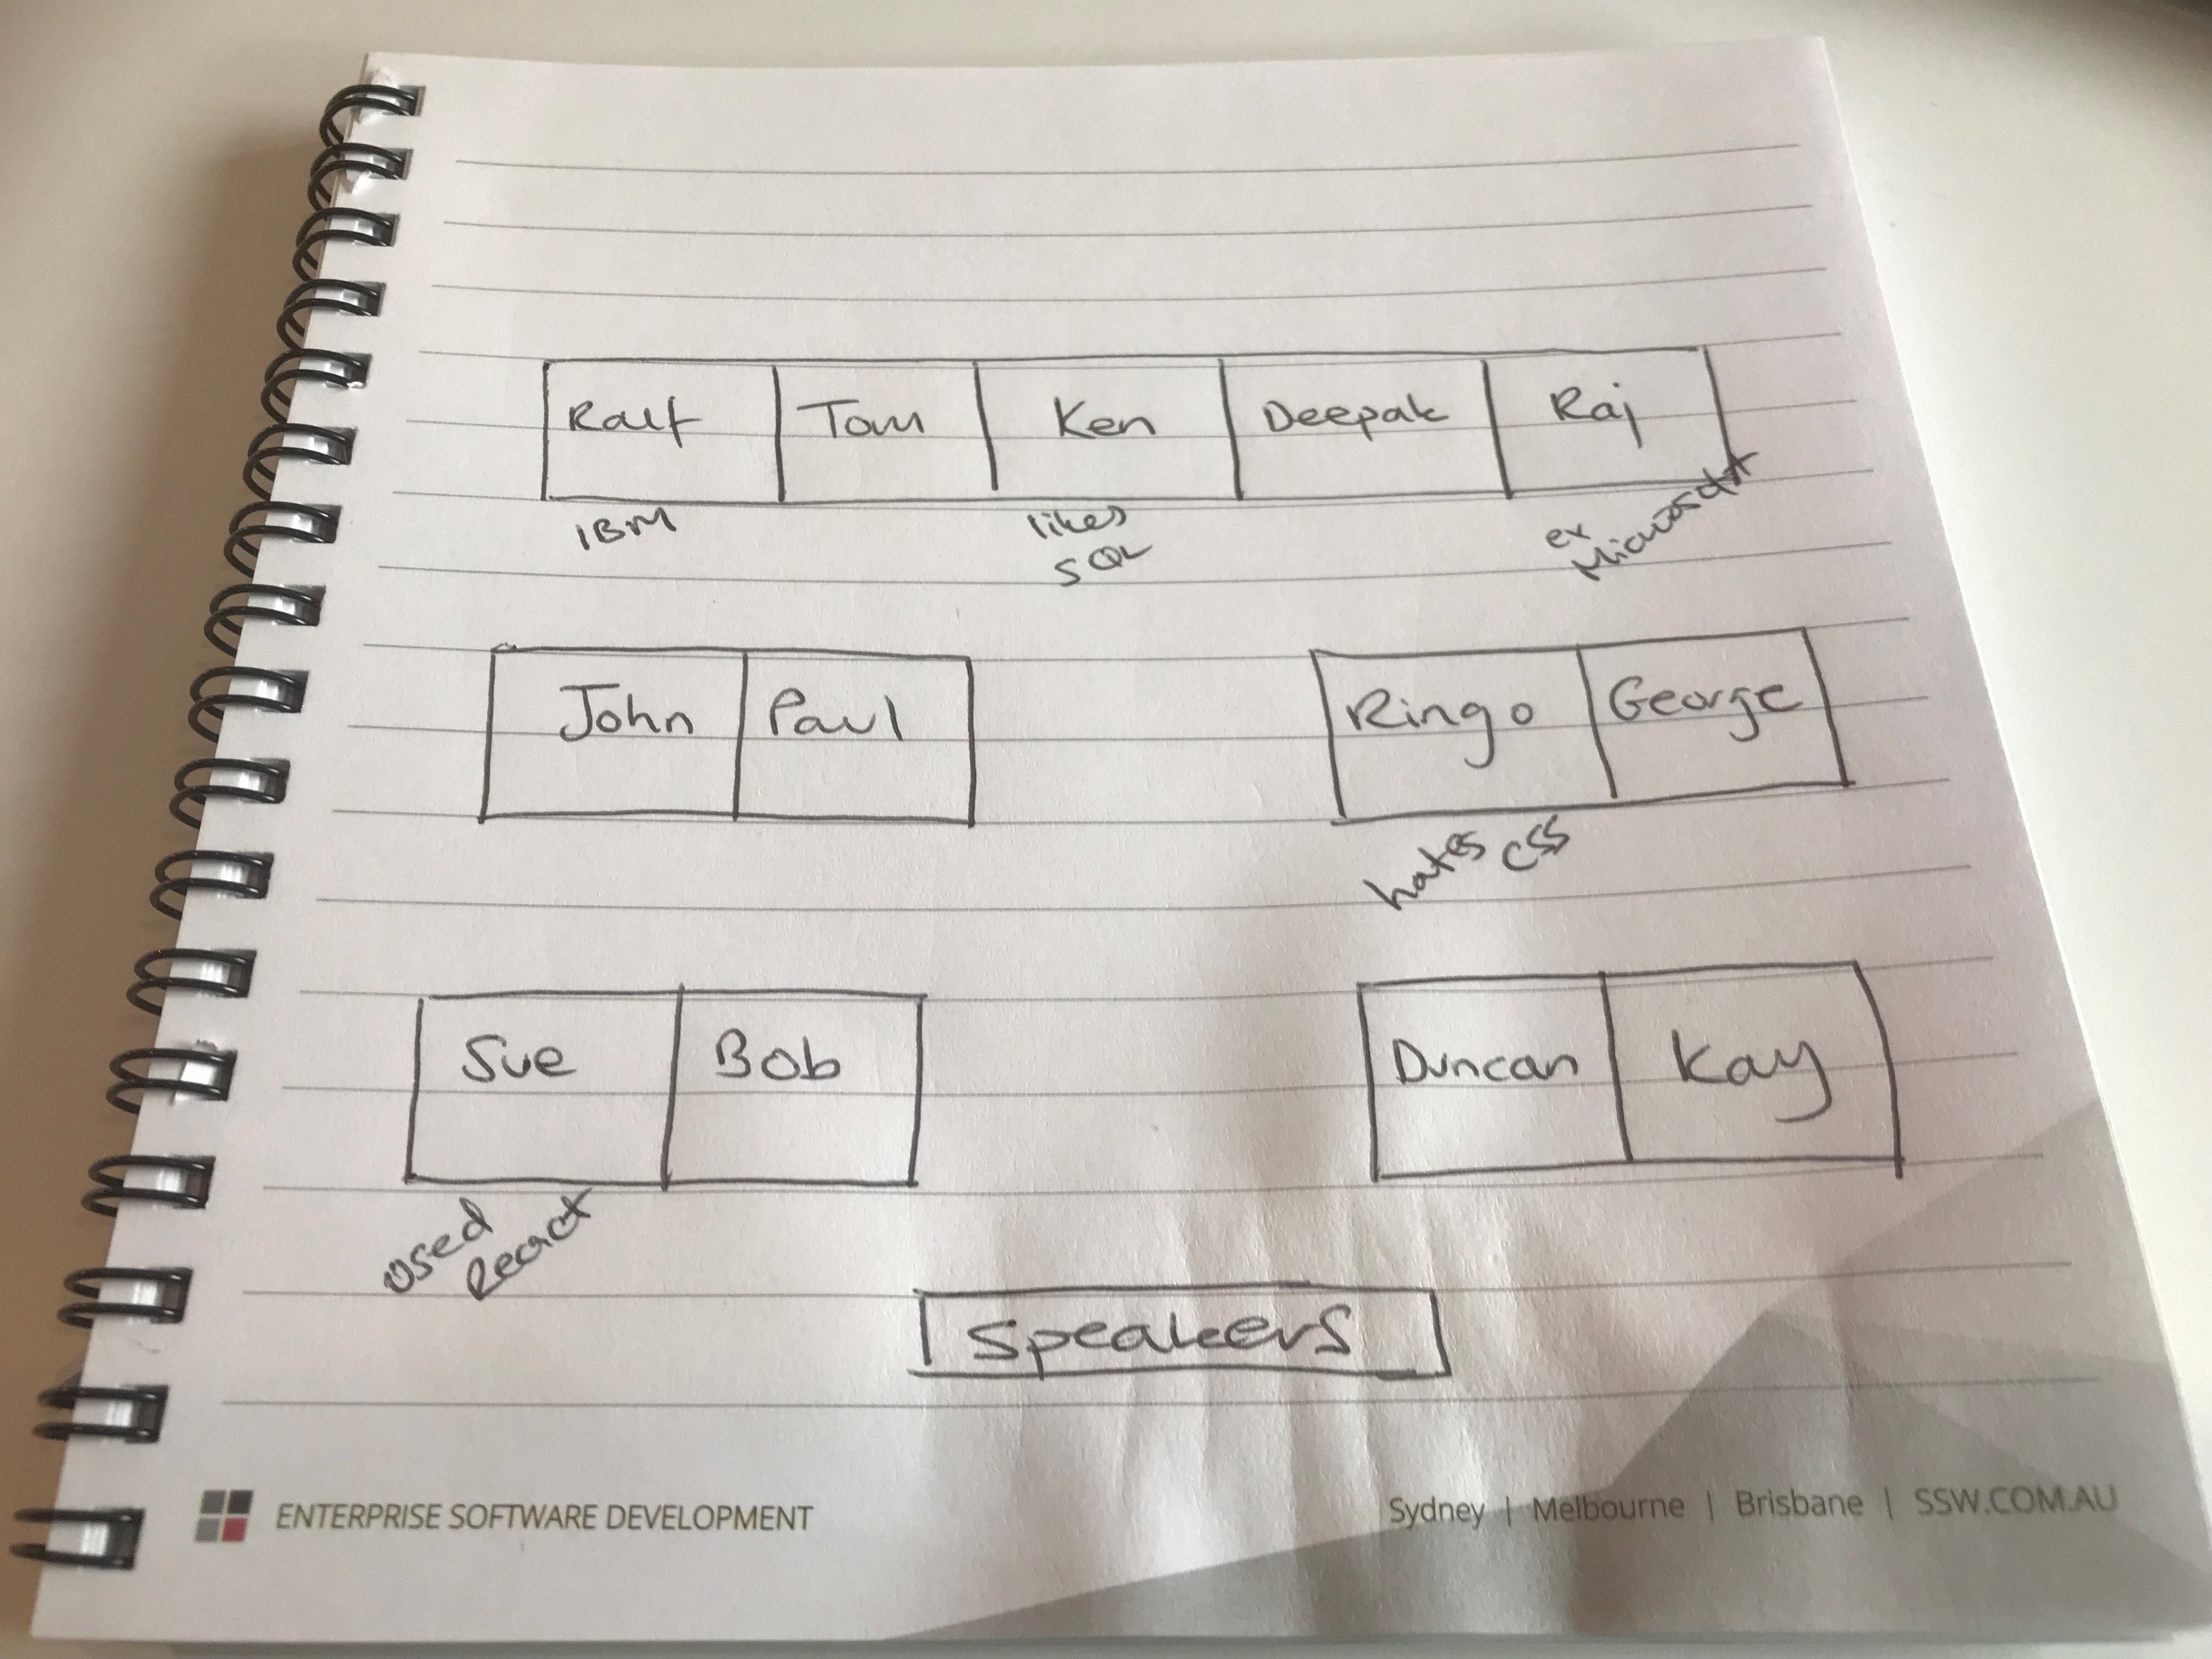 Ralf Tom Ken Deepak Raj
IBM likes ex
SQL Microsoft
John Paul Ringo George
hates CSS
Sue Bob Duncan Kay
Used
React
Speakers
ENTERPRISE SOFTWARE DEVELOPMENT Sydney | Melbourne | Brisbane | SSW.COM.AU